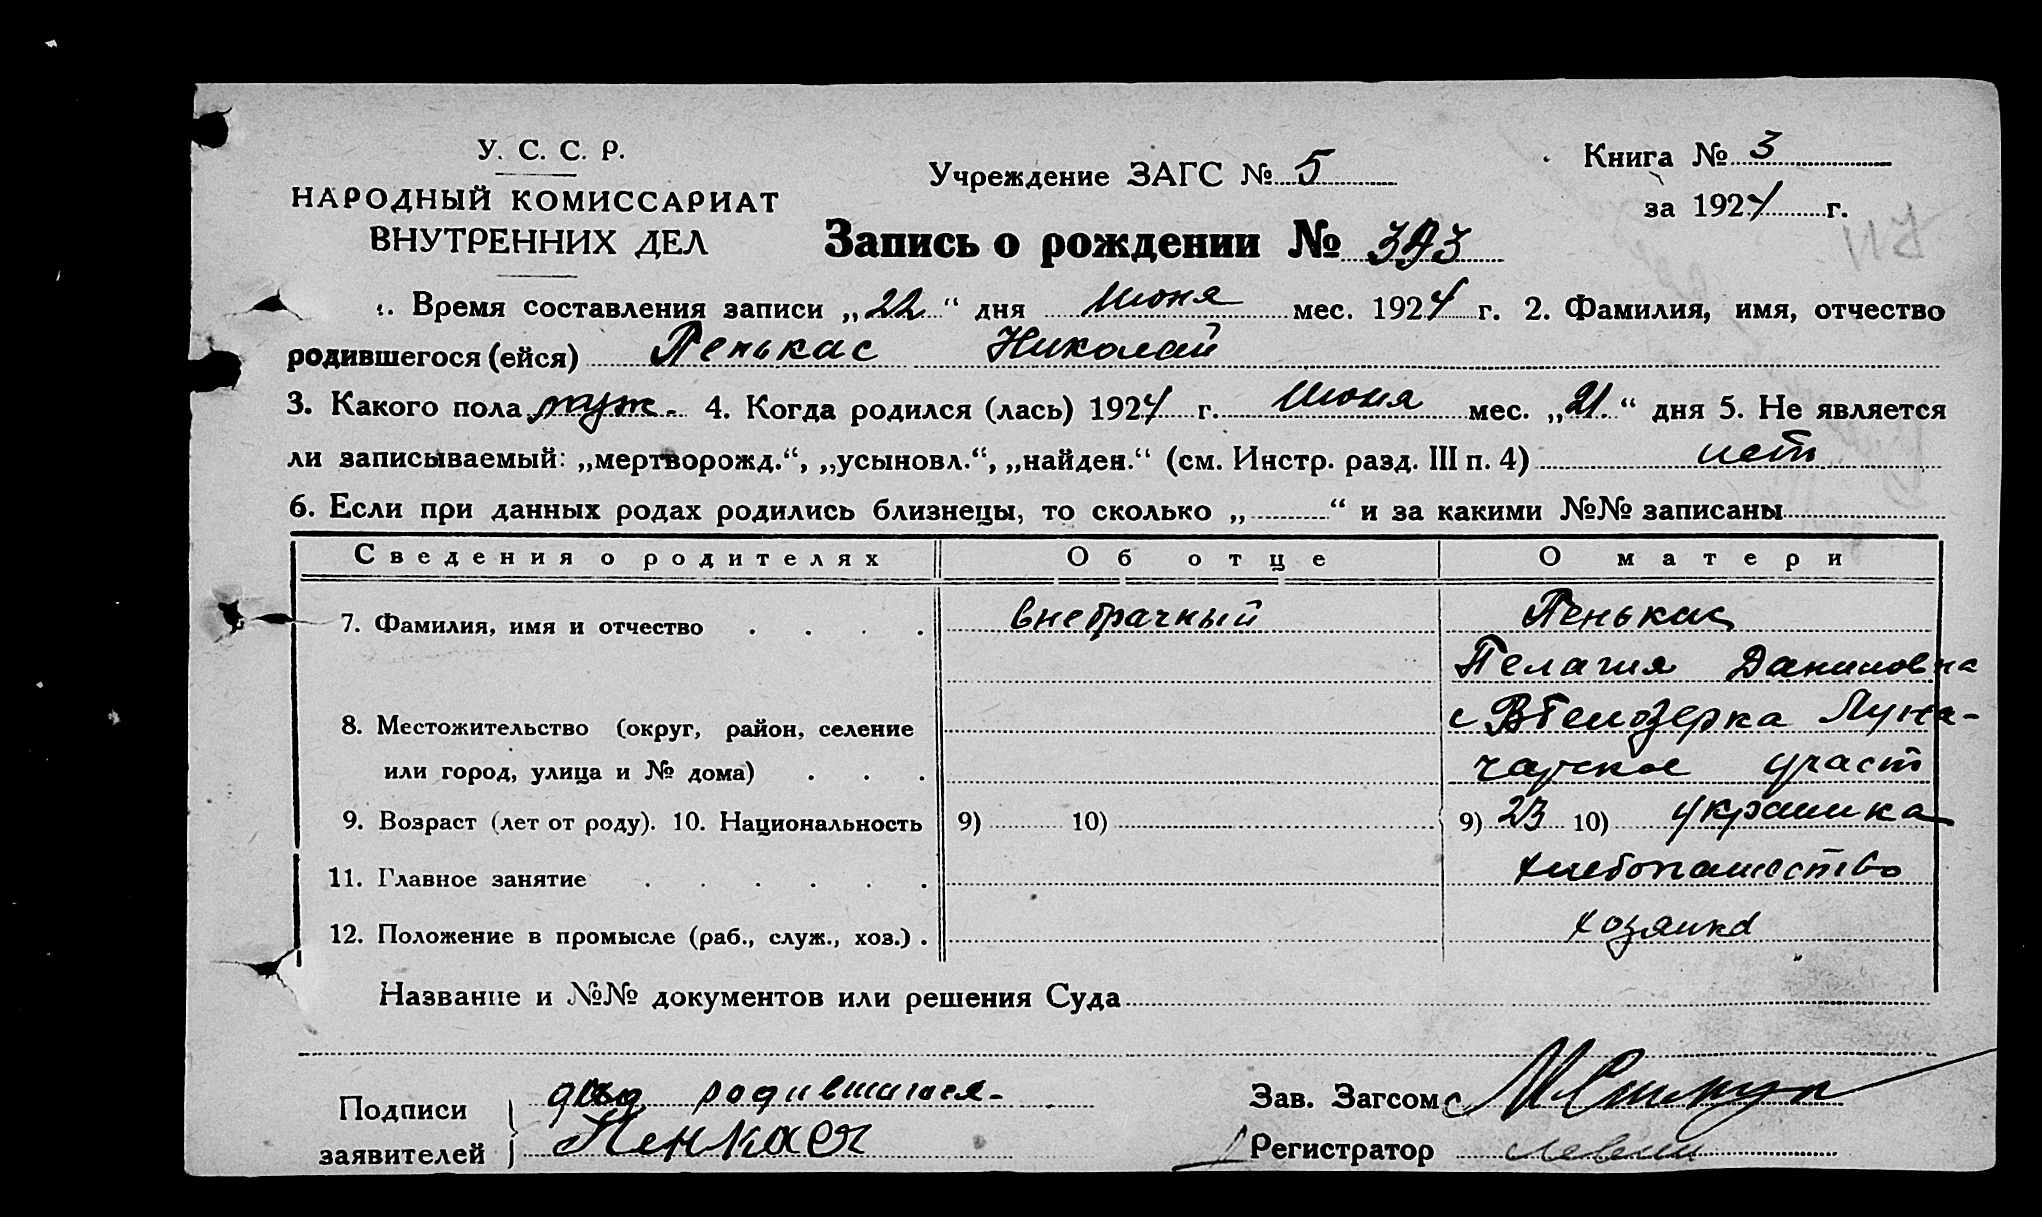 У. С. С. Р.
НАРОДНЫЙ КОМИССАРИАТ
ВНУТРЕННИХ ДЕЛ
Учреждение ЗАГС № 5
Книга № 3
за 1924 г.
Запись о рождении № 393
1. Время составления записи „22“ дня Июня мес. 1924 г. 2. Фамилия, имя, отчество
родившегося (ейся) Пенькас Николай
3. Какого пола муж. 4. Когда родился (лась) 1924 г. Июня мес. „21“ дня 5. Не является
ли записываемый: „мертворожд.“, „усыновл.“, „найден.“ (см. Инстр. разд. III п. 4) нет
6. Если при данных родах родились близнецы, то сколько „ “ и за какими №№ записаны
Сведения о родителях Об отце О матери
7. Фамилия, имя и отчество внебрачный Пенькас
Пелагия Даниловна
8. Местожительство (округ, район, селение с В Белозерка Луна-
или город, улица и № дома) чарское участ
9. Возраст (лет от роду). 10. Национальность 9) 10) 9) 23 10) украинка
11. Главное занятие хлебопашество
12. Положение в промысле (раб., служ., хоз.) хозяйка
Название и №№ документов или решения Суда
Подписи дед родившагося-
заявителей Пенкася
Зав. Загсом
Регистратор